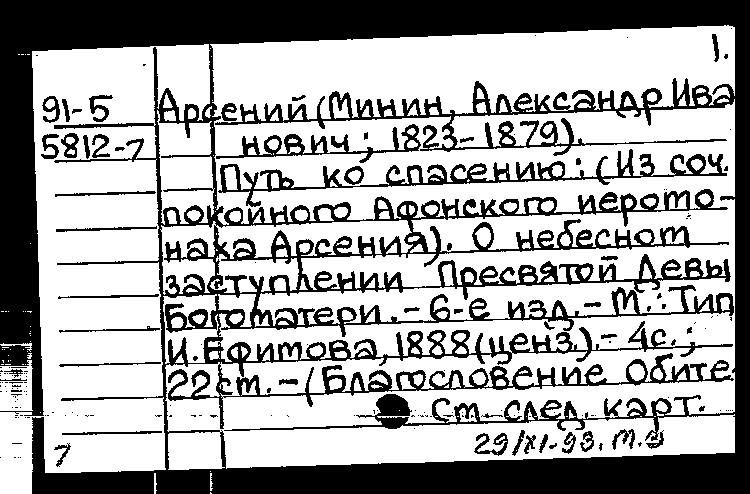 1.
91-5 Арсений (Минин, Александр Ива
5812-7 нович; 1823-1879).
Путь ко спасению: (Из соч.
покойного Афонского иеромо-
наха Арсения). О небесном
заступлении Пресвятой Девы
Богоматери. - 6-е изд. - М.: Тип
И. Ефимова, 1888 (ценз.). - 4с.;
22см. - (Благословение Обите-
См. след. карт.
7 29/XI-93.